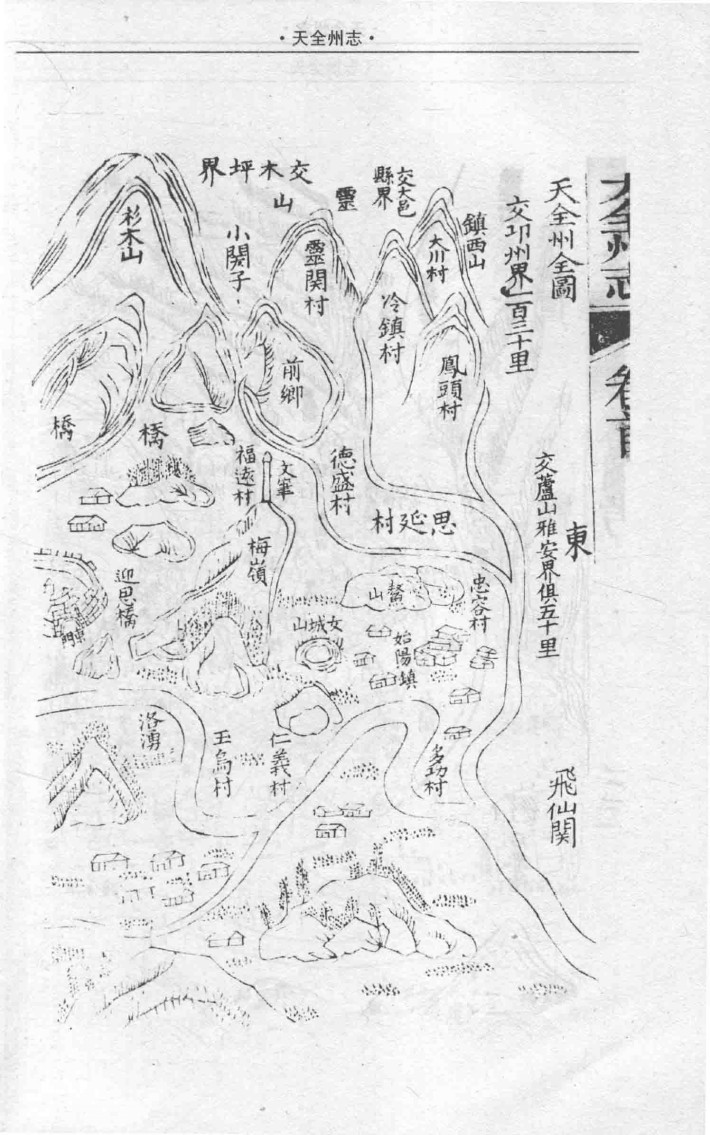 ·天全州志·
天全州志
卷首
天全州全圖
交邛州界一百三十里
交蘆山雅安界俱五十里
東
飛仙関
鎮西山
交大邑
縣界
大川村
冷鎮村
鳳頭村
靈
山
交木坪界
靈関村
小関子
杉木山
前鄉
橋
橋
福遠村
文筆
德盛村
思延村
梅嶺
迎恩橋
門
鰲山
忠谷村
女城山
始陽鎮
洛湧
王烏村
仁義村
多功村